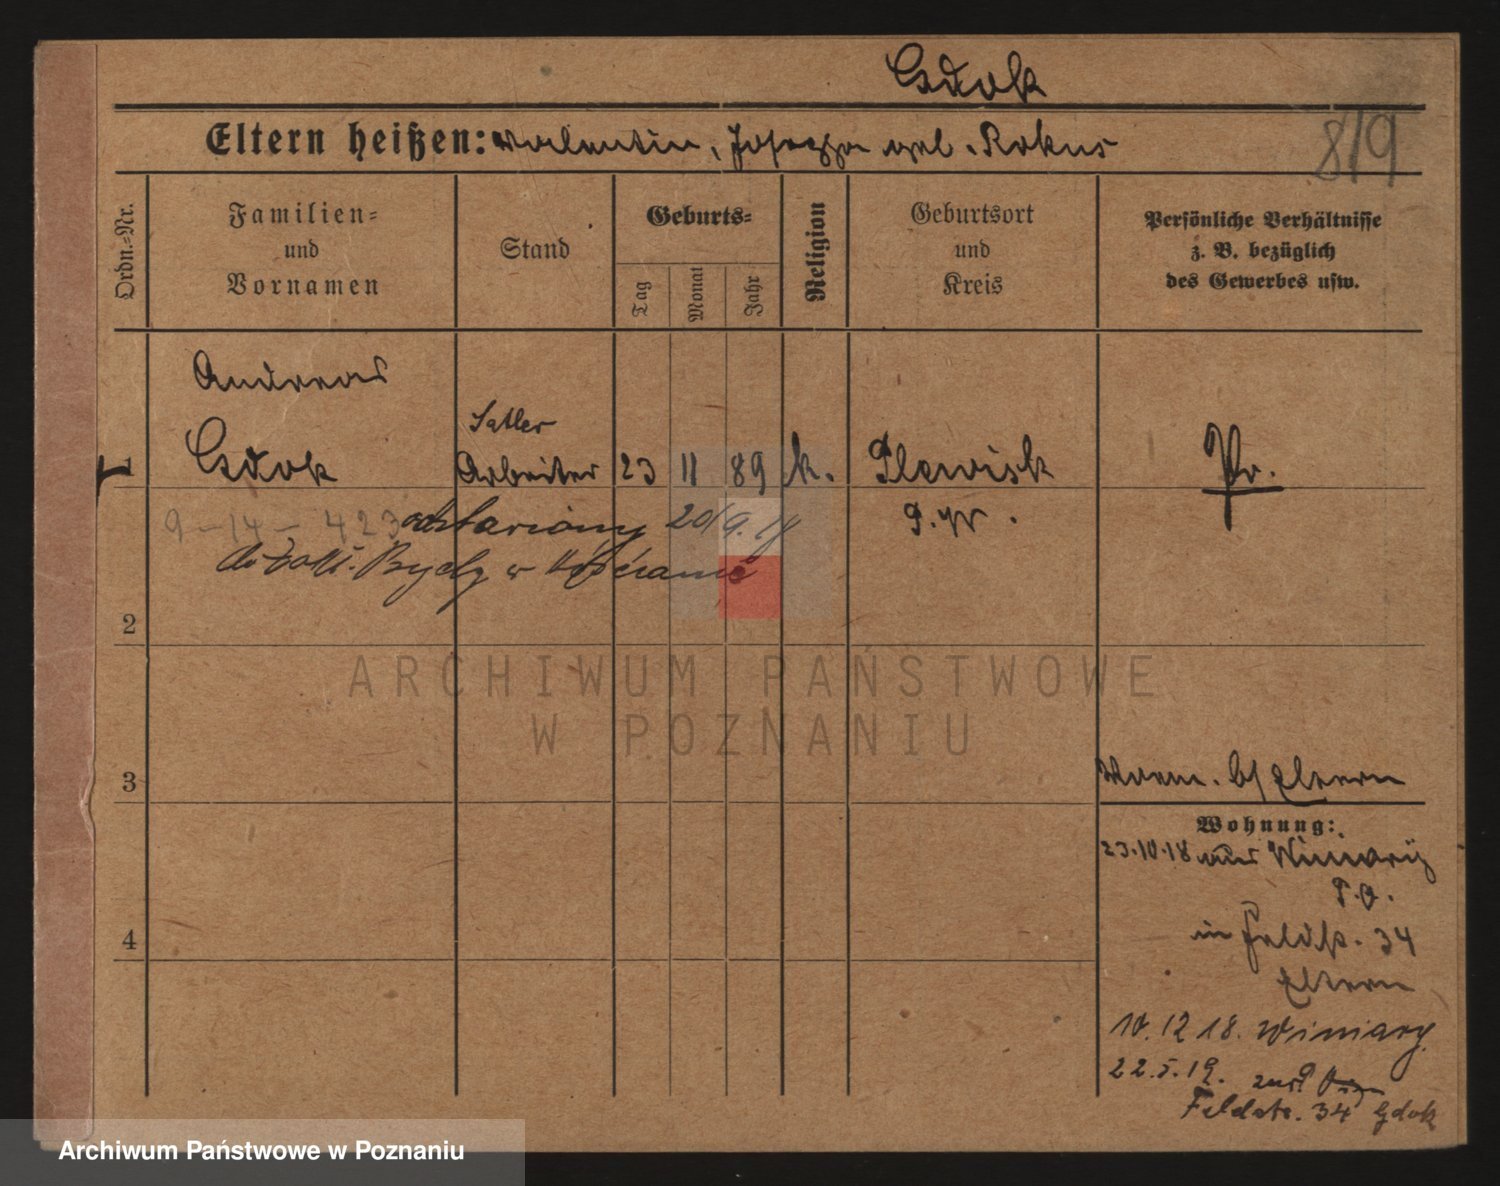 Gdok
Eltern heißen: Valentin, Josepha geb. Rokus
8/9
Ordn.-Nr.
Familien-
und
Vornamen
Stand
Geburts-
Tag
Monat
Jahr
Religion
Geburtsort
und
Kreis
Persönliche Verhältnisse
z. B. bezüglich
des Gewerbes usw.
Andreas
Satler
1 Gdok Arbeiter 23 11 89 k. Plewisk Pr.
P. W.
9-14-423 odstawiony 20/9. 18
do w
2
3
4
b/ Eltern
Wohnung:
23.10.18 aus Winiary
P.O.
in Feldstr. 34
Eltern
10.12 18. Winiary.
22.5.19.
Feldstr. 34 Gdok
ARCHIWUM PAŃSTWOWE
W POZNANIU
Archiwum Państwowe w Poznaniu